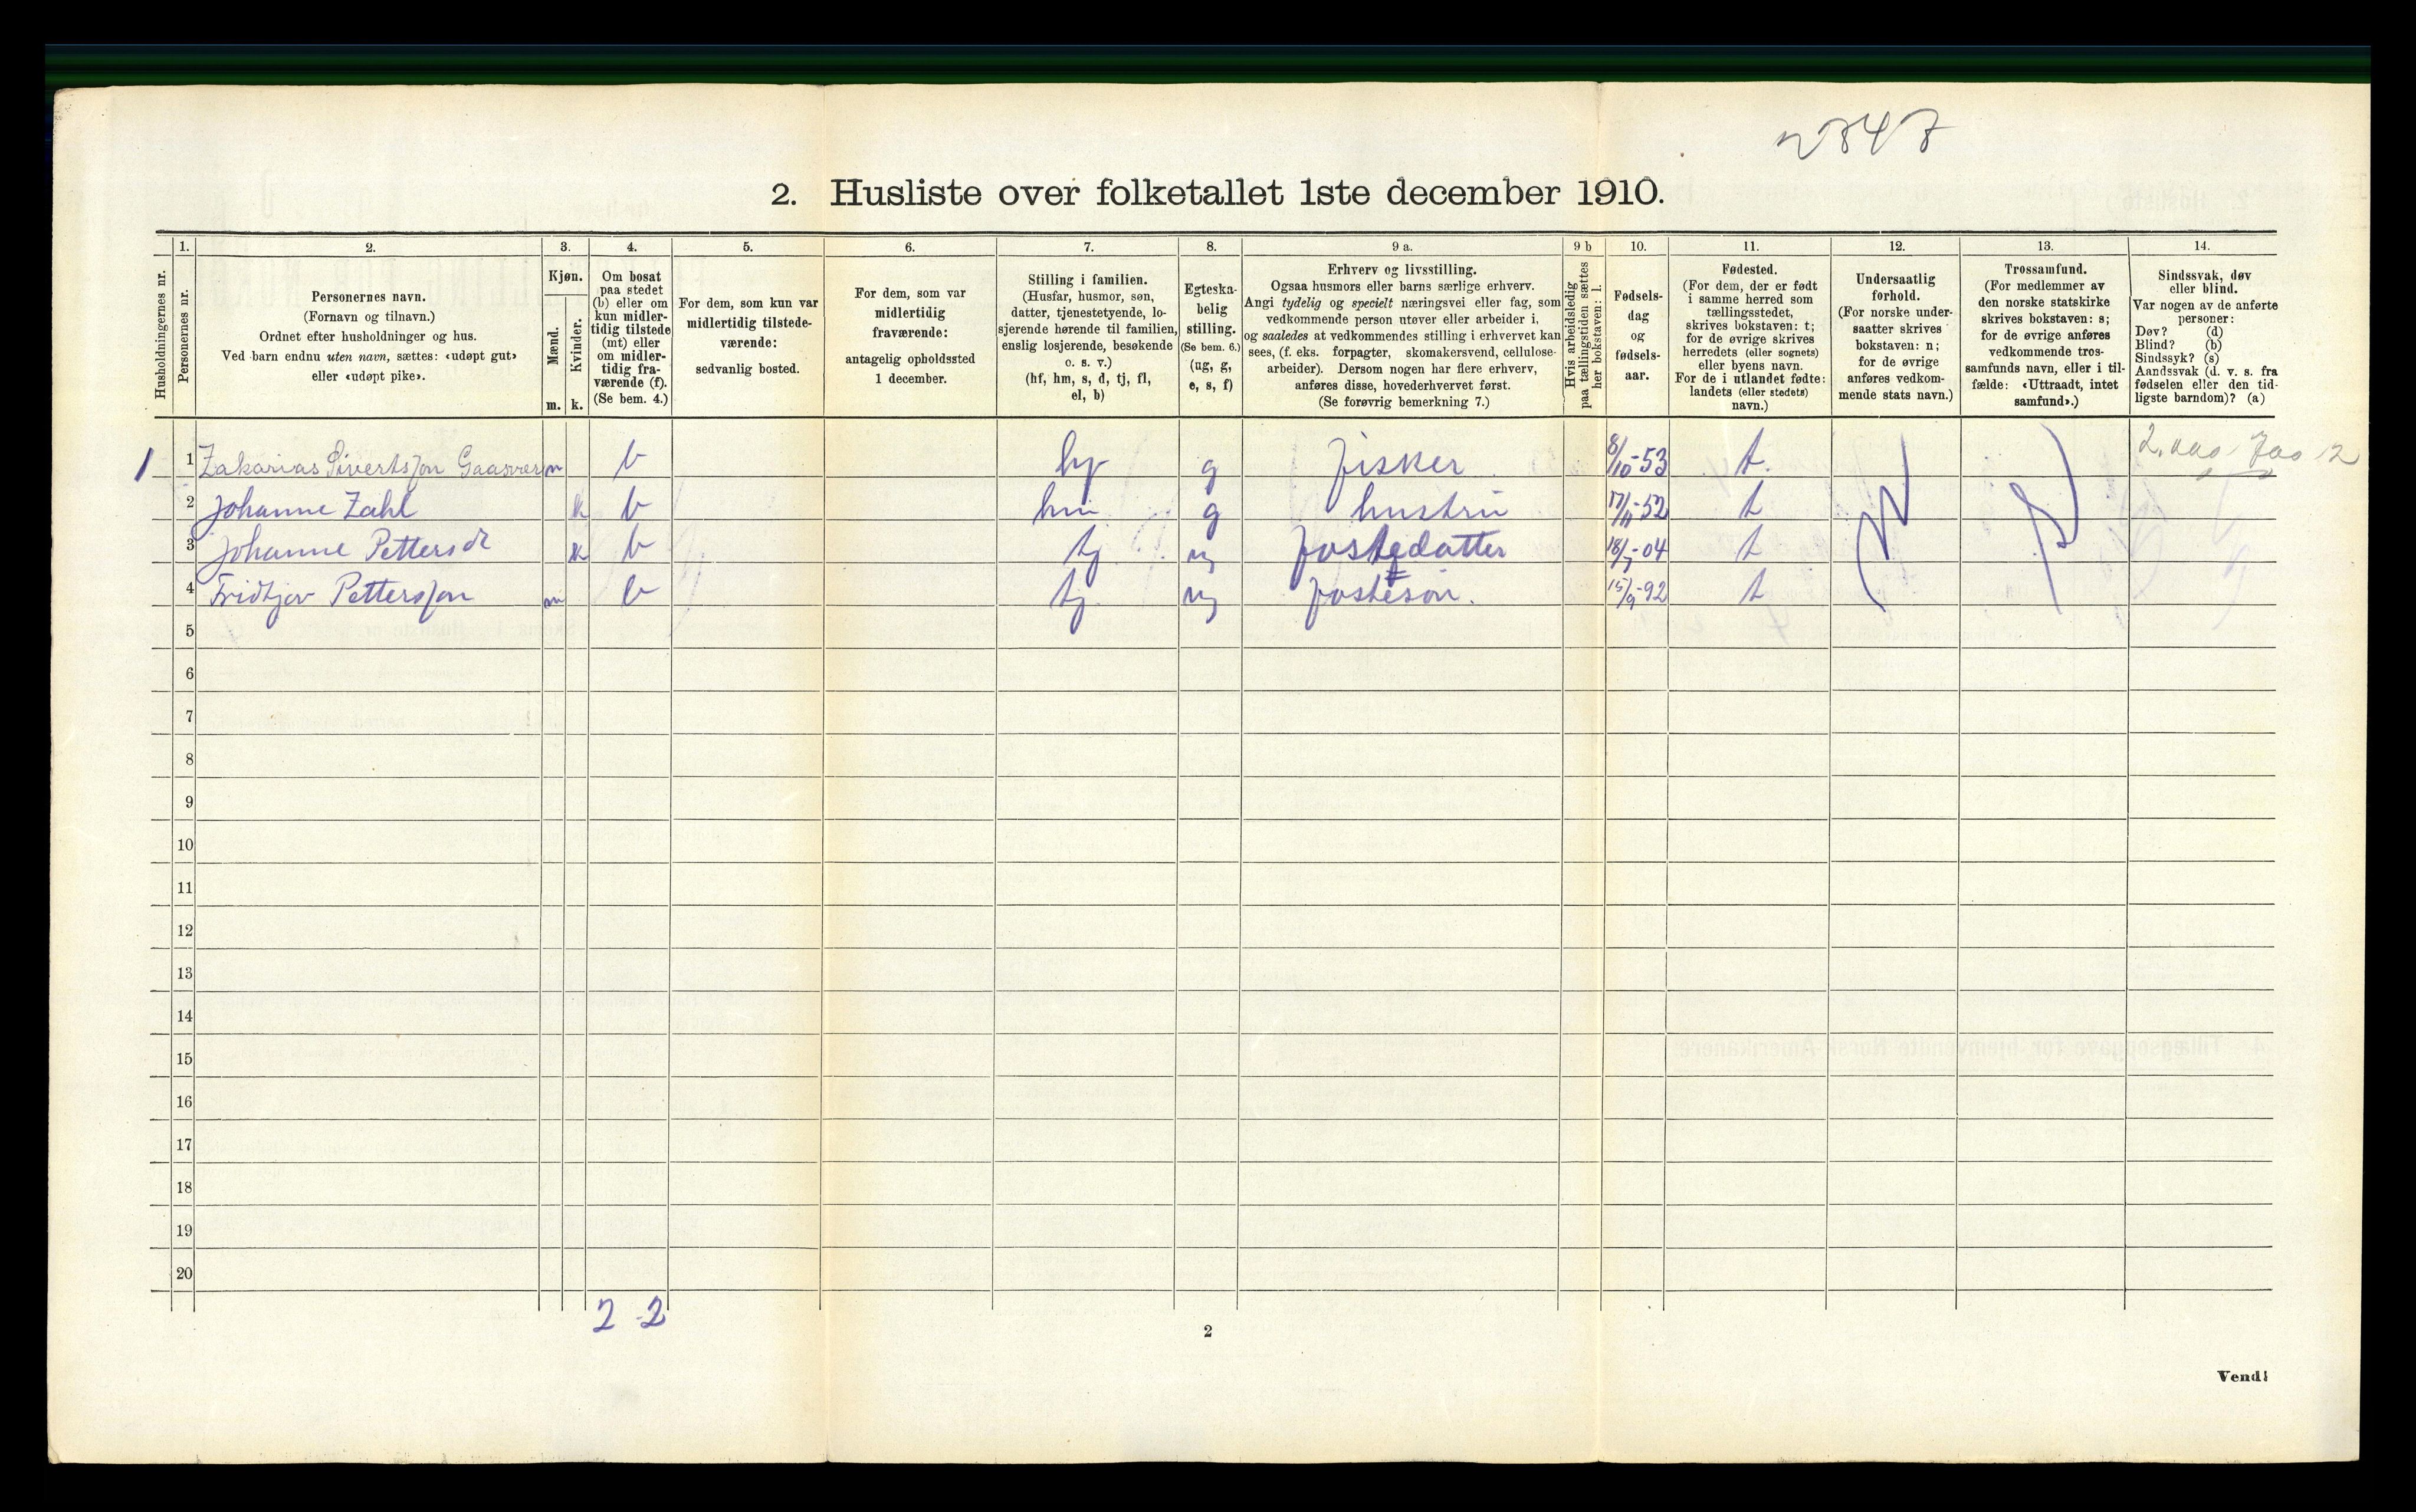 2847
2. Husliste over folketallet 1ste december 1910.
1. 2. 3. 4. 5. 6. 7. 8. 9 a. 9 b 10. 11. 12. 13. 14.
Husholdningernes nr.
Personernes nr.
Personernes navn.
(Fornavn og tilnavn.)
Ordnet efter husholdninger og hus.
Ved barn endnu uten navn, sættes: «udøpt gut»
eller «udøpt pike».
Kjøn.
Mænd.
Kvinder.
m. k.
Om bosat
paa stedet
(b) eller om
kun midler-
tidig tilstede
(mt) eller
om midler-
tidig fra-
værende (f).
(Se bem. 4.)
For dem, som kun var
midlertidig tilstede-
værende:
sedvanlig bosted.
For dem, som var
midlertidig
fraværende:
antagelig opholdssted
1 december.
Stilling i familien.
(Husfar, husmor, søn,
datter, tjenestetyende, lo-
sjerende hørende til familien,
enslig losjerende, besøkende
o. s. v.)
(hf, hm, s, d, tj, fl,
el, b)
Egteska-
belig
stilling.
(Se bem. 6.)
(ug, g,
e, s, f)
Erhverv og livsstilling.
Ogsaa husmors eller barns særlige erhverv.
Angi tydelig og specielt næringsvei eller fag, som
vedkommende person utøver eller arbeider i,
og saaledes at vedkommendes stilling i erhvervet kan
sees, (f. eks. forpagter, skomakersvend, cellulose-
arbeider). Dersom nogen har flere erhverv,
anføres disse, hovederhvervet først.
(Se forøvrig bemerkning 7.)
Hvis arbeidsledig
paa tællingstiden sættes
her bokstaven: l.
Fødsels-
dag
og
fødsels-
aar.
Fødested.
(For dem, der er født
i samme herred som
tællingsstedet,
skrives bokstaven: t;
for de øvrige skrives
herredets (eller sognets)
eller byens navn.
For de i utlandet fødte:
landets (eller stedets)
navn.)
Undersaatlig
forhold.
(For norske under-
saatter skrives
bokstaven: n;
for de øvrige
anføres vedkom-
mende stats navn.)
Trossamfund.
(For medlemmer av
den norske statskirke
skrives bokstaven: s;
for de øvrige anføres
vedkommende tros-
samfunds navn, eller i til-
fælde: «Uttraadt, intet
samfund».)
Sindssvak, døv
eller blind.
Var nogen av de anførte
personer:
Døv? (d)
Blind? (b)
Sindssyk? (s)
Aandssvak (d. v. s. fra
fødselen eller den tid-
ligste barndom)? (a)
1 1 Zakarias Sivertsson Gaasvær m b hf g fisker 8/10-53 t.
2 Johanne Zahl k b hm g hustru 17/11-52 t
3 Johanne Pettersdt k b tj ug fostedatter 18/7-04 t
4 Fridtjov Petterson m b tj ug fosterson. 15/9-92 t
n s
5
6
7
8
9
10
11
12
13
14
15
16
17
18
19
20
2 2
2
Vend!